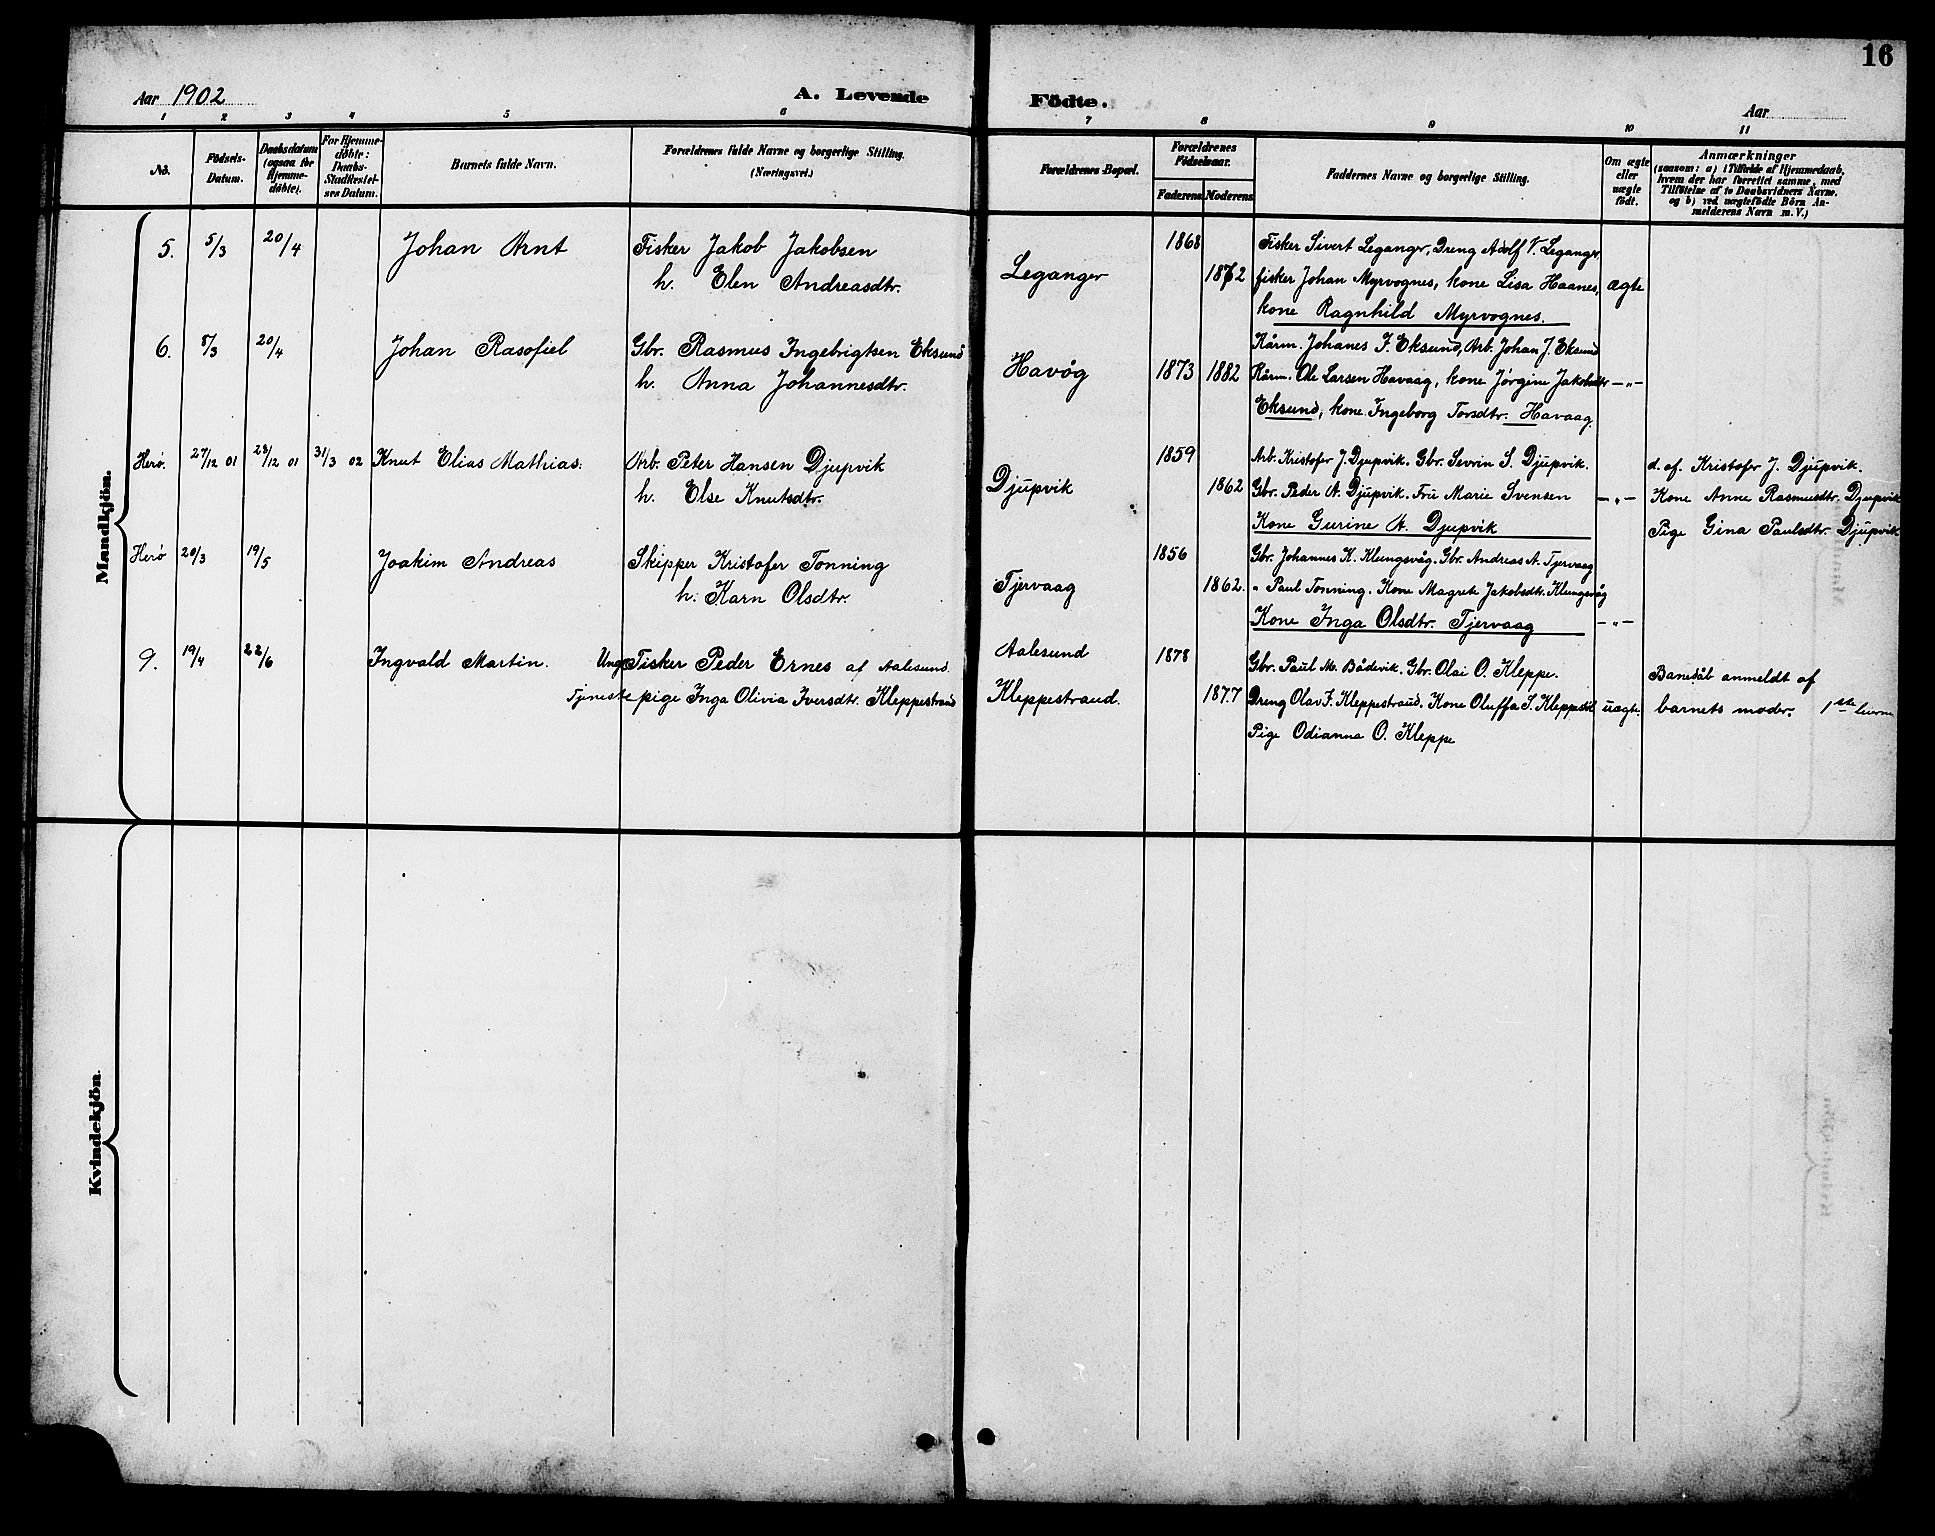 16
Aar 1902 A. Levende Födte. Aar
1 2 3 4 5 6 7 8 9 10 11
No.
Födsels-Datum.
Daabsdatum (ogsaa for Hjemmedöbte).
For Hjemmedöbte: Daabs-Stadfæstelses Datum.
Barnets fulde Navn.
Forældrenes fulde Navne og borgerlige Stilling. (Næringsvei.)
Forældrenes Bopæl.
Forældrenes Födselsaar.
Faderens Moderens
Faddernes Navne og borgerlige Stilling.
Om ægte eller uægte födt.
Anmærkninger
(saasom: a) i Tilfælde af Hjemmedaab, hvem der har forrettet samme, med Tilföielse af to Daabsvidners Navne, og b) ved uægtefödte Börn Anmelderens Navn m. V.)
Mandkjön.
5. 5/3 20/4 Johan Arnt Fisker Jakob Jakobsen
h. Elen Andreasdtr.
Leganger 1868 1872
Fisker Sivert Leganger, Dreng Adolf V. Leganger
fisker Johan Myrvognes, kone Lisa Haanes, ægte
kone Ragnhild Myrvognes.
6. 8/3 20/4 Johan Rasofiel Gbr. Rasmus Ingebrigtsen Eksund
h. Anna Johannesdtr.
Havåg 1873 1882
Kårm. Johanes J. Eksund, Arb. Johan J. Eksund
Kårm. Ole Larsen Havaag, kone Jørgine Jakobsdtr -"-
Eksund, kone Ingeborg Torsdtr. Havaag.
Herø. 27/12 01 28/12 01 31/3 02 Knut Elias Mathias. Arb. Peter Hansen Djupvik
h. Else Knutsdtr.
Djupvik 1859 1862
Arb. Kristofer J. Djupvik. Gbr. Sevrin S. Djupvik.
Gbr. Peder A. Djupvik. Fru Marie Svensen -"-
Kone Gurine A. Djupvik
d. af. Kristofer J. Djupvik.
Kone Anne Rasmusdtr. Djupvik
Pige Gina Paulsdtr. Djupvik
Herø 20/3 19/5 Joakim Andreas Skipper Kristofer Tonning
h. Karn Olsdtr.
Tjervaag 1856 1862.
Gbr. Johannes K. Klungsvåg. Gbr. Andreas A. Tjervaag
" Paul Tonning. Kone Magrete Jakobsdtr. Klungsvåg
Kone Inga Olsdtr. Tjervaag -"-
9. 19/4 22/6 Ingvald Martin. Ung. Fisker Peder Ernes af Aalesund.
Tjenestepige Inga Olivia Iversdtr. Kleppestrand
Aalesund 1878
Kleppestrand. 1877
Gbr. Paul M. Bådsvik. Gbr. Olai O. Kleppe.
Dreng Olav I. Kleppestrand. Kone Oluffa S. Kleppestr. uægte.
Pige Odianna O. Kleppe
anmeldt af
barnets moder. 1ste
Kvindekjön.